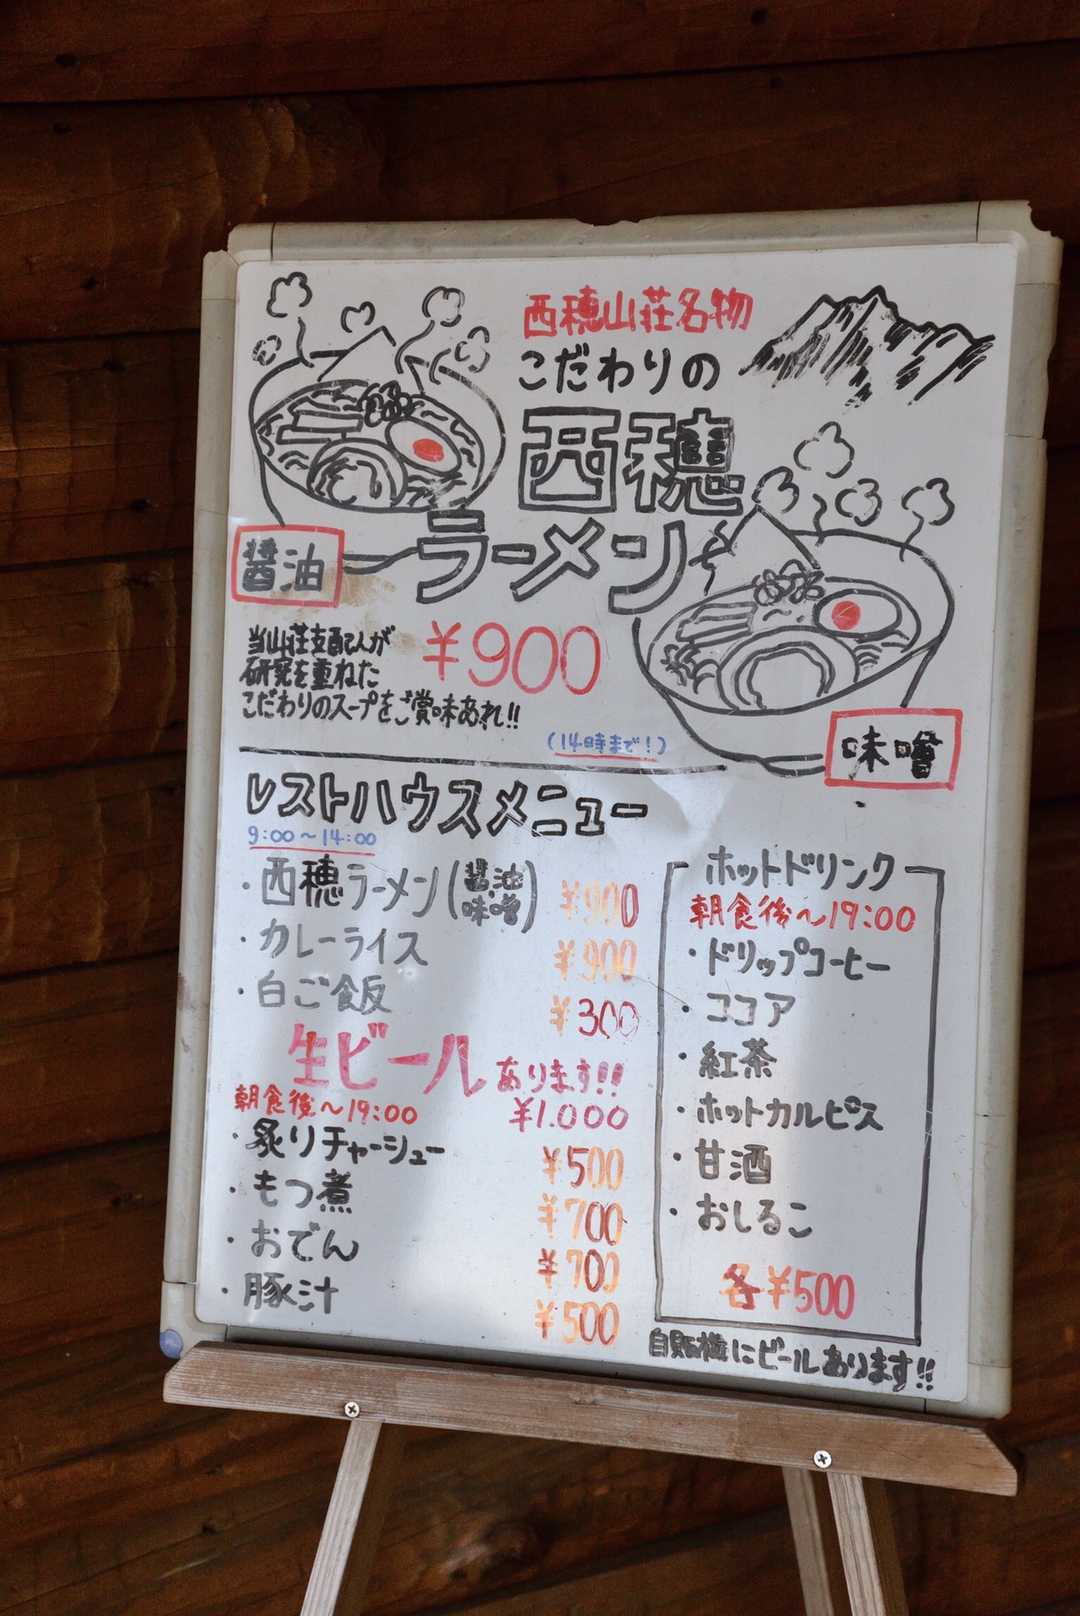 西穂山荘名物
こだわりの
西穂
ラーメン
醤油
味噌
¥900
当山荘支配人が
研究を重ねた
こだわりのスープをご賞味あれ!!
(14時まで!)
レストハウスメニュー
9:00～14:00
・西穂ラーメン(醤油 味噌) ¥900
・カレーライス ¥900
・白ご飯 ¥300
生ビールあります!!
¥1.000
朝食後～19:00
・炙りチャーシュー ¥500
・もつ煮 ¥700
・おでん ¥700
・豚汁 ¥500
ホットドリンク
朝食後～19:00
・ドリップコーヒー
・ココア
・紅茶
・ホットカルピス
・甘酒
・おしるこ
各¥500
自販機にビールあります!!